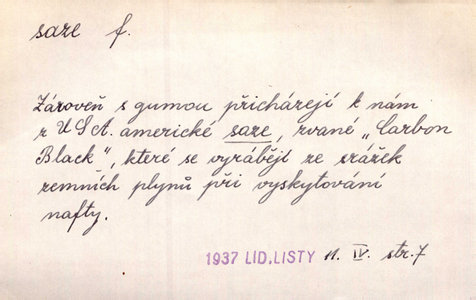 saze f.
Zároveň s gumou přicházejí k nám
z USA. americké saze, zvané „Carbon
Black", které se vyrábějí ze srážek
zemních plynů při vyskytování
nafty.
1937 LID.LISTY 11. IV. str. 7